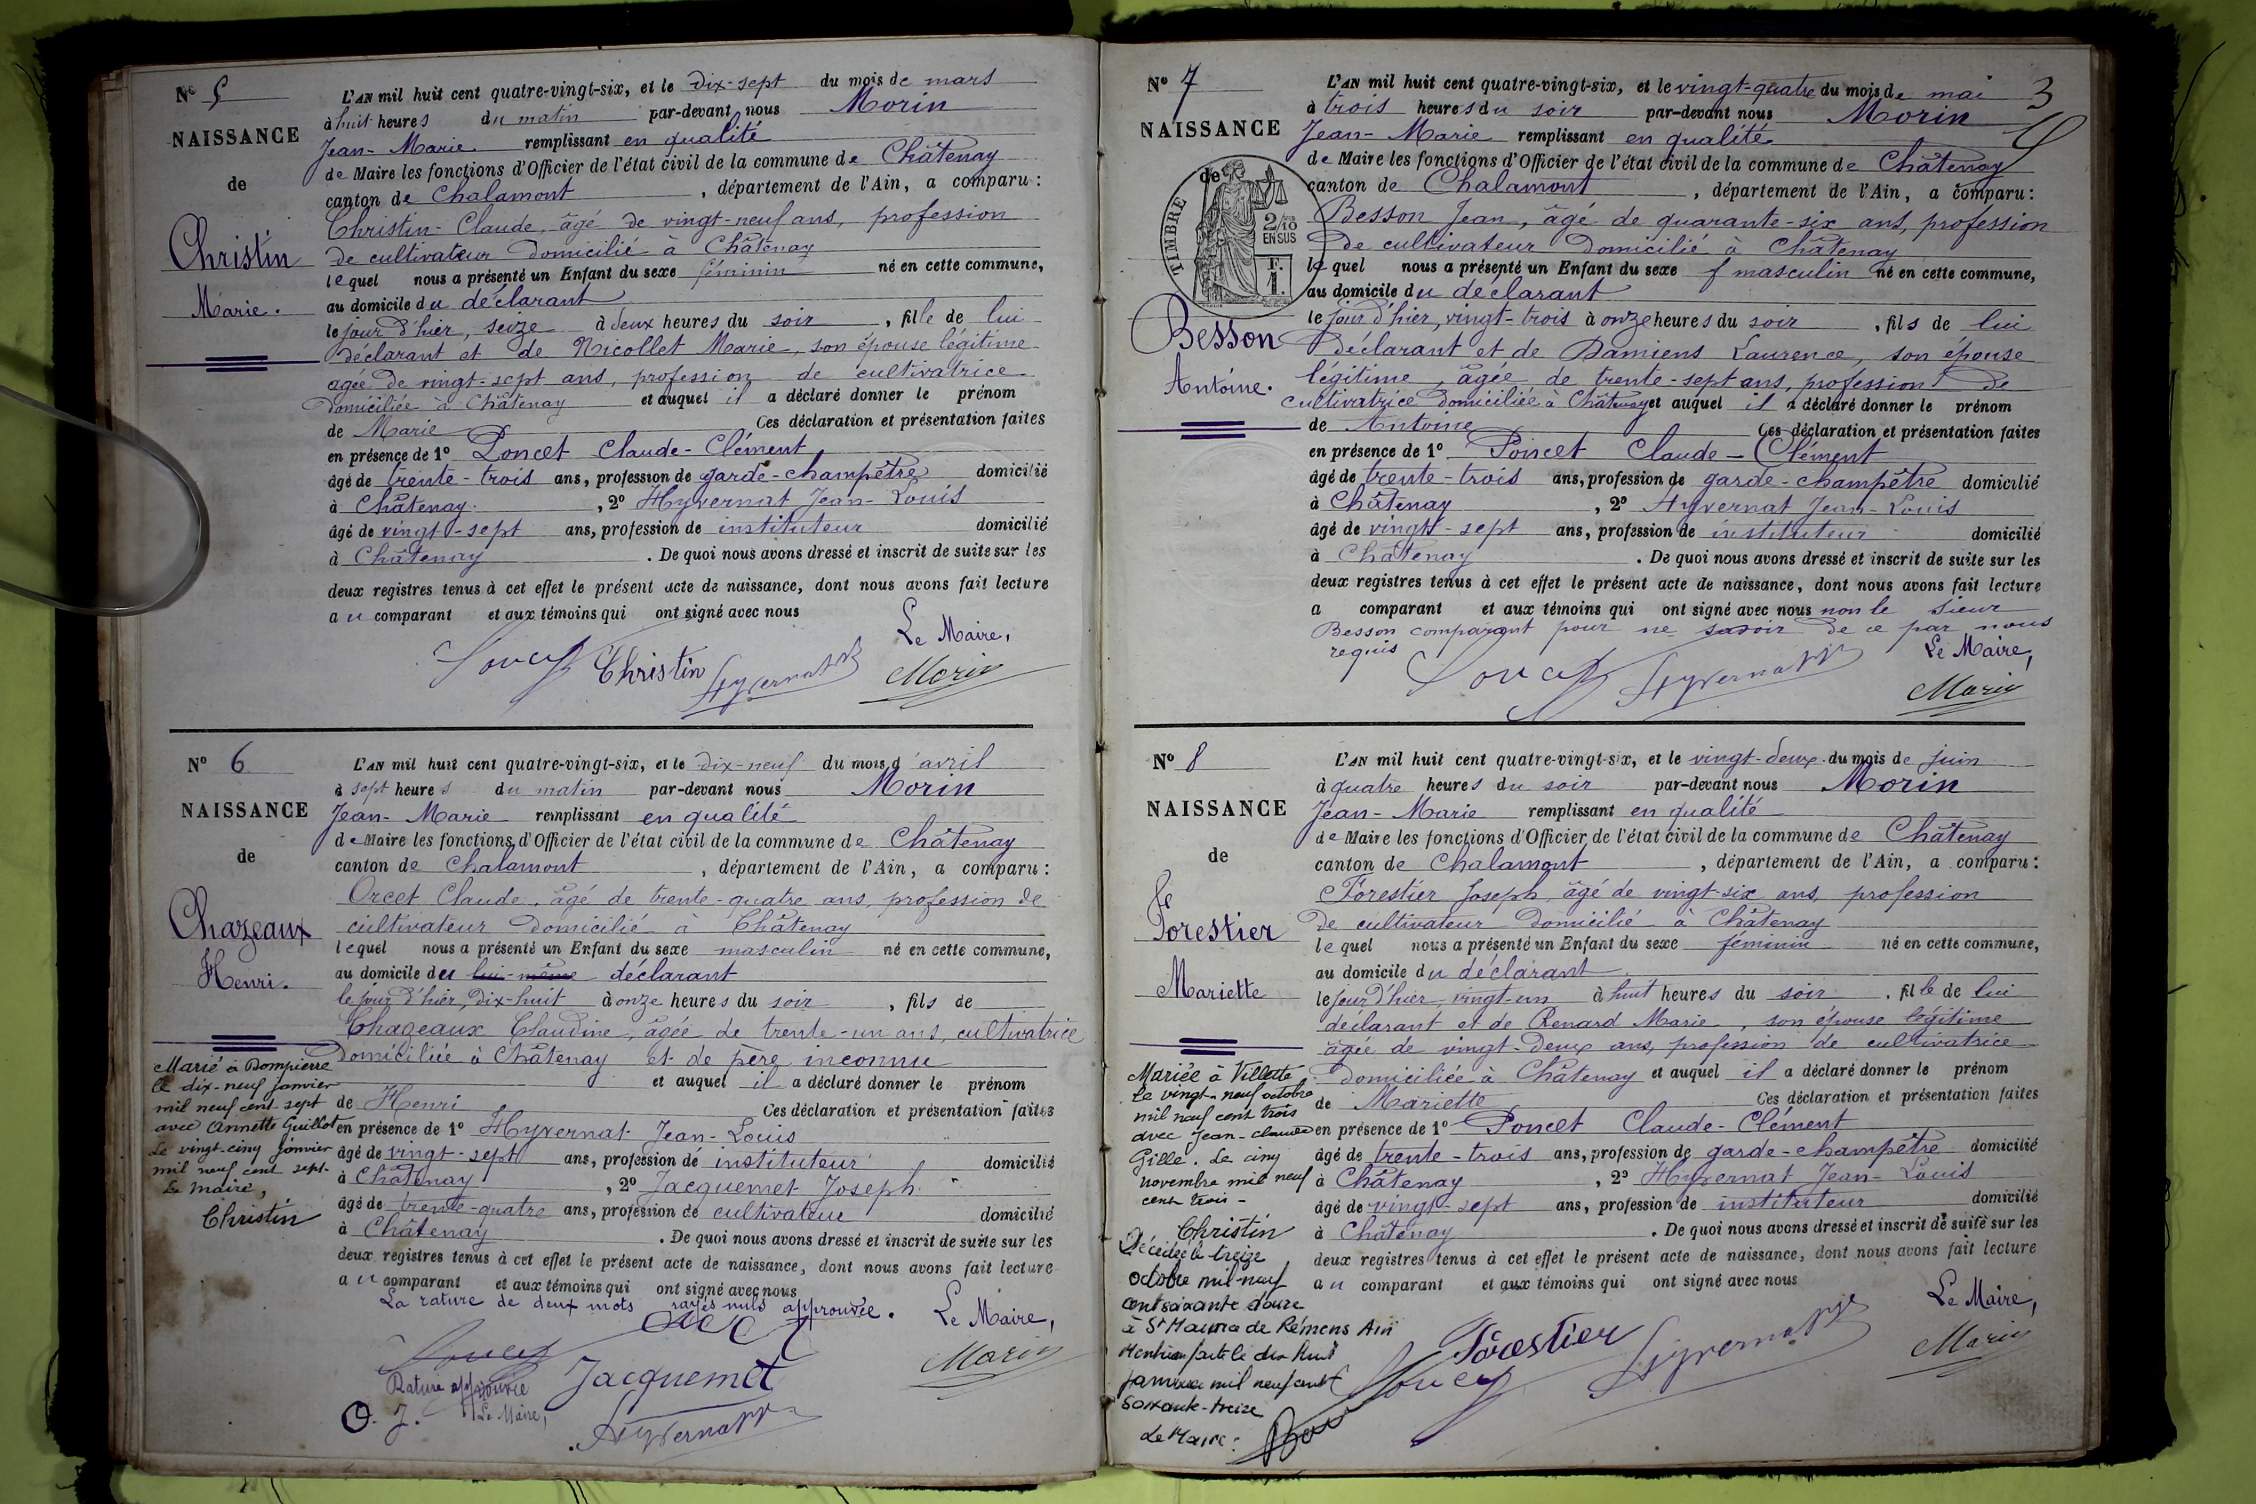 Nº 5
NAISSANCE
de
Christin
Marie.
L'AN mil huit cent quatre-vingt-six, et le dix-sept du mois de mars
à huit heures du matin par-devant nous Morin
Jean-Marie remplissant en qualité
de Maire les fonctions d'Officier de l'état civil de la commune de Châtenay
canton de Chalamont, département de l'Ain, a comparu:
Christin Claude, âgé de vingt-neuf ans, profession
de cultivateur domicilié à Châtenay
lequel nous a présenté un Enfant du sexe féminin né en cette commune,
au domicile du déclarant
le jour d'hier, seize à deux heures du soir, fille de lui
déclarant et de Nicollet Marie, son épouse légitime
agée de vingt-sept ans, profession de cultivatrice
domiciliée à Châtenay et auquel il a déclaré donner le prénom
de Marie Ces déclaration et présentation faites
en présence de 1º Poncet Claude-Clément
âgé de trente-trois ans, profession de garde-champêtre domicilié
à Châtenay, 2º Hyvernat Jean-Louis
âgé de vingt-sept ans, profession de instituteur domicilié
à Châtenay. De quoi nous avons dressé et inscrit de suite sur les
deux registres tenus à cet effet le présent acte de naissance, dont nous avons fait lecture
au comparant et aux témoins qui ont signé avec nous
Le Maire,
Poncet Christin Hyvernat Morin
Nº 6
NAISSANCE
de
Chazeaux
Henri.
L'AN mil huit cent quatre-vingt-six, et le dix-neuf du mois d'avril
à sept heures du matin par-devant nous Morin
Jean-Marie remplissant en qualité
de Maire les fonctions d'Officier de l'état civil de la commune de Châtenay
canton de Chalamont, département de l'Ain, a comparu:
Orcet Claude, âgé de trente-quatre ans, profession de
cultivateur domicilié à Châtenay
lequel nous a présenté un Enfant du sexe masculin né en cette commune,
au domicile du lui-même déclarant
le jour d'hier, dix-huit à onze heures du soir, fils de
Chazeaux Claudine, âgée de trente-un ans, cultivatrice
domiciliée à Châtenay et de père inconnu
et auquel il a déclaré donner le prénom
de Henri Ces déclaration et présentation faites
en présence de 1º Hyvernat Jean-Louis
âgé de vingt-sept ans, profession de instituteur domicilié
à Châtenay, 2º Jacquemet Joseph
âgé de trente-quatre ans, profession de cultivateur domicilié
à Châtenay. De quoi nous avons dressé et inscrit de suite sur les
deux registres tenus à cet effet le présent acte de naissance, dont nous avons fait lecture
au comparant et aux témoins qui ont signé avec nous
La rature de deux mots rayés nuls approuvée.
Le Maire,
Orcet
Jacquemet Morin
Rature approuvée
Le Maire,
O. J.
Hyvernat
Marié à Dompierre
le dix-neuf janvier
mil neuf cent sept
avec Annette Guillot
Le vingt-cinq janvier
mil neuf cent sept.
Le maire,
Christin
3
Nº 7
NAISSANCE
de
TIMBRE
2/10
EN SUS
F.
1.
Besson
Antoine.
L'AN mil huit cent quatre-vingt-six, et le vingt-quatre du mois de mai
à trois heures du soir par-devant nous Morin
Jean-Marie remplissant en qualité
de Maire les fonctions d'Officier de l'état civil de la commune de Châtenay
canton de Chalamont, département de l'Ain, a comparu:
Besson Jean, âgé de quarante-six ans, profession
de cultivateur domicilié à Châtenay
lequel nous a présenté un Enfant du sexe f masculin né en cette commune,
au domicile du déclarant
le jour d'hier, vingt-trois à onze heures du soir, fils de lui
déclarant et de Damiens Laurence, son épouse
légitime, âgée de trente-sept ans, profession de
cultivatrice domiciliée à Châtenay et auquel il a déclaré donner le prénom
de Antoine Ces déclaration et présentation faites
en présence de 1º Poncet Claude-Clément
âgé de trente-trois ans, profession de garde-champêtre domicilié
à Châtenay, 2º Hyvernat Jean-Louis
âgé de vingt-sept ans, profession de instituteur domicilié
à Châtenay. De quoi nous avons dressé et inscrit de suite sur les
deux registres tenus à cet effet le présent acte de naissance, dont nous avons fait lecture
a comparant et aux témoins qui ont signé avec nous non le sieur
Besson comparant pour ne savoir de ce par nous
requis
Le Maire,
Poncet Hyvernat Morin
Nº 8
NAISSANCE
de
Forestier
Mariette
L'AN mil huit cent quatre-vingt-six, et le vingt-deux du mois de juin
à quatre heures du soir par-devant nous Morin
Jean-Marie remplissant en qualité
de Maire les fonctions d'Officier de l'état civil de la commune de Châtenay
canton de Chalamont, département de l'Ain, a comparu:
Forestier Joseph, âgé de vingt-six ans, profession
de cultivateur domicilié à Châtenay
lequel nous a présenté un Enfant du sexe féminin né en cette commune,
au domicile du déclarant
le jour d'hier, vingt-un à huit heures du soir. fille de lui
déclarant et de Renard Marie, son épouse légitime
âgée de vingt-deux ans, profession de cultivatrice
domiciliée à Châtenay et auquel il a déclaré donner le prénom
de Mariette Ces déclaration et présentation faites
en présence de 1º Poncet Claude-Clément
âgé de trente-trois ans, profession de garde-champêtre domicilié
à Châtenay, 2º Hyvernat Jean-Louis
âgé de vingt-sept ans, profession de instituteur domicilié
à Châtenay. De quoi nous avons dressé et inscrit de suite sur les
deux registres tenus à cet effet le présent acte de naissance, dont nous avons fait lecture
au comparant et aux témoins qui ont signé avec nous
Le Maire,
Forestier Hyvernat Morin
Poncet
Mariée à Villette
Le vingt-neuf octobre
mil neuf cent trois
avec Jean-Claude
Gille. Le cinq
novembre mil neuf
cent trois-
Christin
Décédée le treize
octobre mil neuf
cent soixante douze
à St Maurice de Rémens Ain
Mention faite le dix huit
janvier mil neuf cent
soixante-treize
Le Maire: